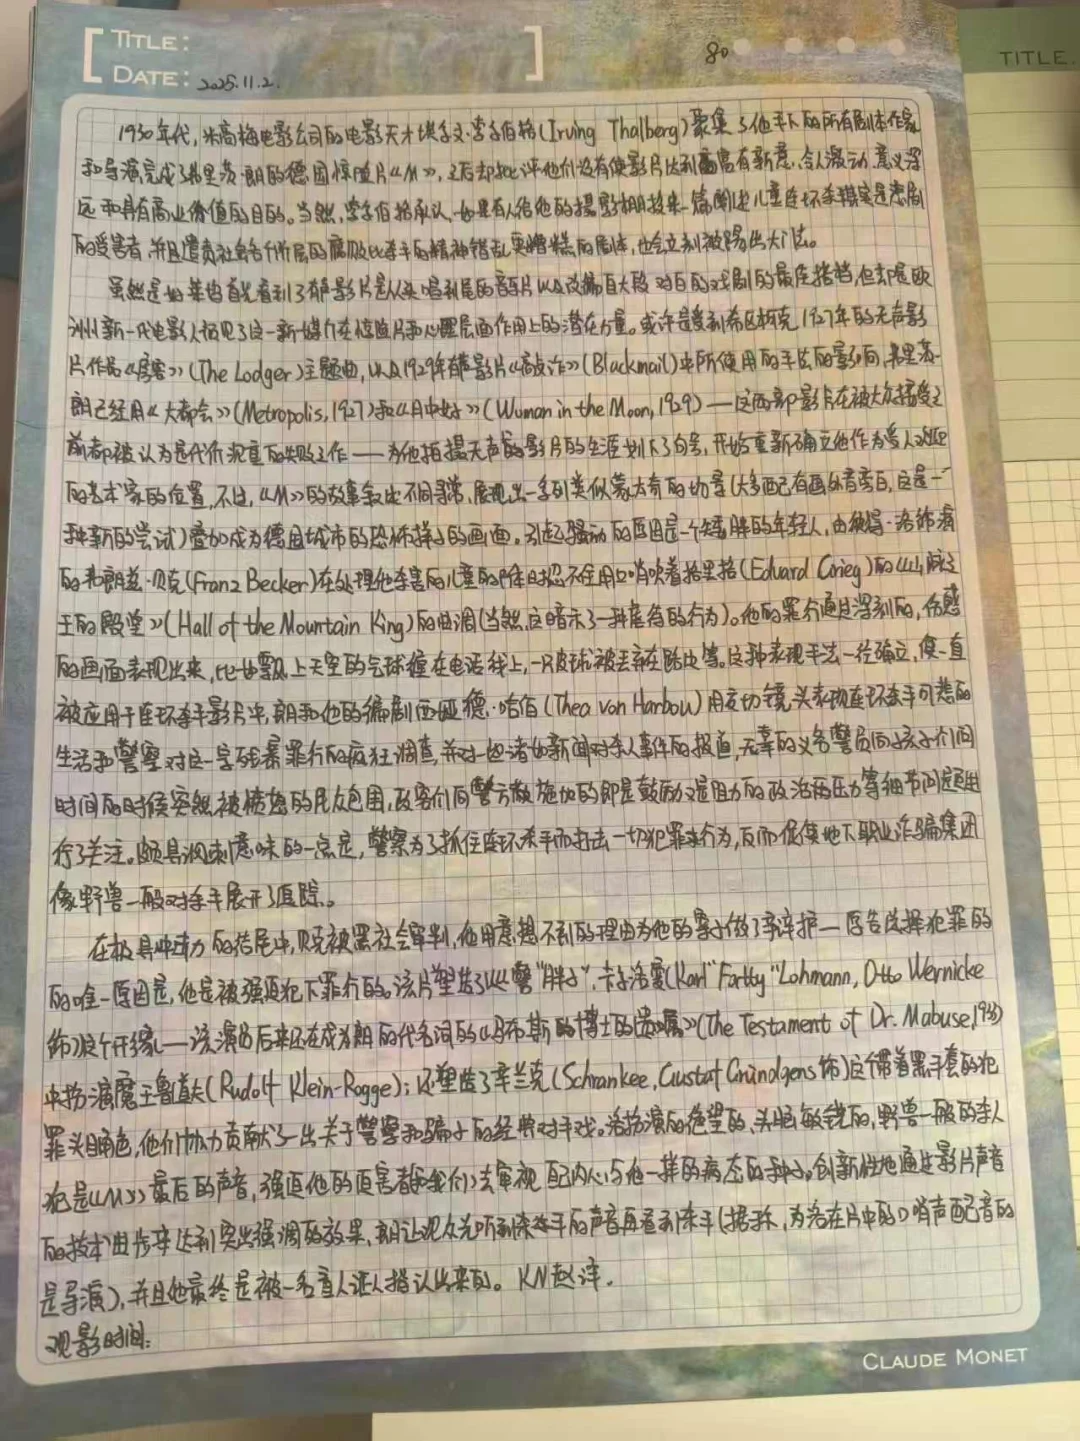 TITLE:
80
TITLE.
DATE: 2025.11.2.
1930年代,米高梅电影公司的电影天才埃尔文·萨尔伯格(Irving Thalberg)聚集了他手下的所有剧本作家
和导演完成了弗里茨·朗的德国惊险片《M》,之后却批评他们没有使影片达到富有新意、令人激动、意义深
远和具有商业价值的目的。当然,萨尔伯格承认,如果有人给他的摄影棚投来一篇儿童连环杀手其实是悲剧
的受害者,并且谴责社会各个阶层的腐败比杀手的精神错乱更糟糕的剧本,也会立刻被踢出大门去。
虽然是好莱坞首先看到了有声影片是从头唱到尾的音乐片以及改编自大段对白的戏剧的最佳搭档,但却是欧
洲新一代电影人预见了这一新媒介在惊险片和心理层面作用上的潜在力量。或许是受到希区柯克1927年的无声影
片作品《房客》(The Lodger)主题曲,以及1929年有声影片《敲诈》(Blackmail)中所使用的手法的影响,弗里茨·
朗已经用《大都会》(Metropolis,1927)和《月中女》(Woman in the Moon,1929)——这两部影片在被大众接受之
前都被认为是代价沉重的失败之作——为他拍摄无声影片的生涯划下了句号,开始重新确立他作为受人欢迎
的艺术家的位置,不过,《M》的故事叙述不同寻常,展现出一系列类似蒙太奇的场景(大多配有画外音旁白,这是一
种新的尝试)叠加成为德国城市的恐怖样子的画面。引起骚动的原因是一个矮胖的年轻人,由彼得·洛饰演
的弗朗兹·贝克(Franz Becker)在处理他杀害的儿童的除时忍不住用口哨吹着格里格(Eduard Grieg)的《山脉之
王的殿堂》(Hall of the Mountain King)的曲调(当然,这暗示了一种虐待的行为)。他的罪行通过深刻的,伤感
的画面表现出来,比如飘上天空的气球撞在电话线上,一只皮球被丢弃在路边等。这种表现手法一经确立,便一直
被应用于连环杀手影片中,朗和他的编剧西娅德·哈伯(Thea von Harbou)用交切镜头表现连环杀手可悲的
生活和警察对这一字残暴罪行的疯狂调查,并对一些诸如新闻对杀人事件的报道,无辜的义务警员问孩子们问
时间的时候突然被愤怒的民众包围,政客们向警方施加的即是鼓励又是阻力的政治两压力等细节问题进
行了关注。颇具讽刺意味的一点是,警察为了抓住连环杀手而打击一切犯罪行为,反而促使地下职业诈骗集团
像野兽一般对杀手展开了追踪。
在极具冲击力的结尾中,贝克被黑社会审判,他用意想不到的理由为他的案子做了辛辩护—原告选择犯罪的
的唯一原因是,他是被强迫犯下罪行的。该片塑造了以警“胖子”卡尔·洛曼(Karl "Fatty "Lohmann, Otto Wernicke
饰)这个形象——该演员后来还在成为朗的代名词的《马布斯的博士的遗嘱》(The Testament of Dr. Mabuse,1933)
中扮演魔王鲁道夫(Rudolf Klein-Rogge);还塑造了辛兰克(Schrankee, Gustaf Gründgens饰)这个带着黑手套的犯
罪头目角色,他们协力贡献了一出关于警察和骗子的经典对手戏。洛扮演的绝望的、头脑敏锐的,野兽一般的杀人
犯是《M》最后的声音,强迫他的迫害者(和我们)去审视自己内心与他一样的病态的种子。创新性地通过影片声音
的技术进步来达到突出强调的效果,朗让观众先听到杀手的声音再看到杀手(据称,为洛在片中的口哨声配音的
是导演),并且他最终是被一名盲人证人指认出来的。KN赵洋.
观影时间:
CLAUDE MONET